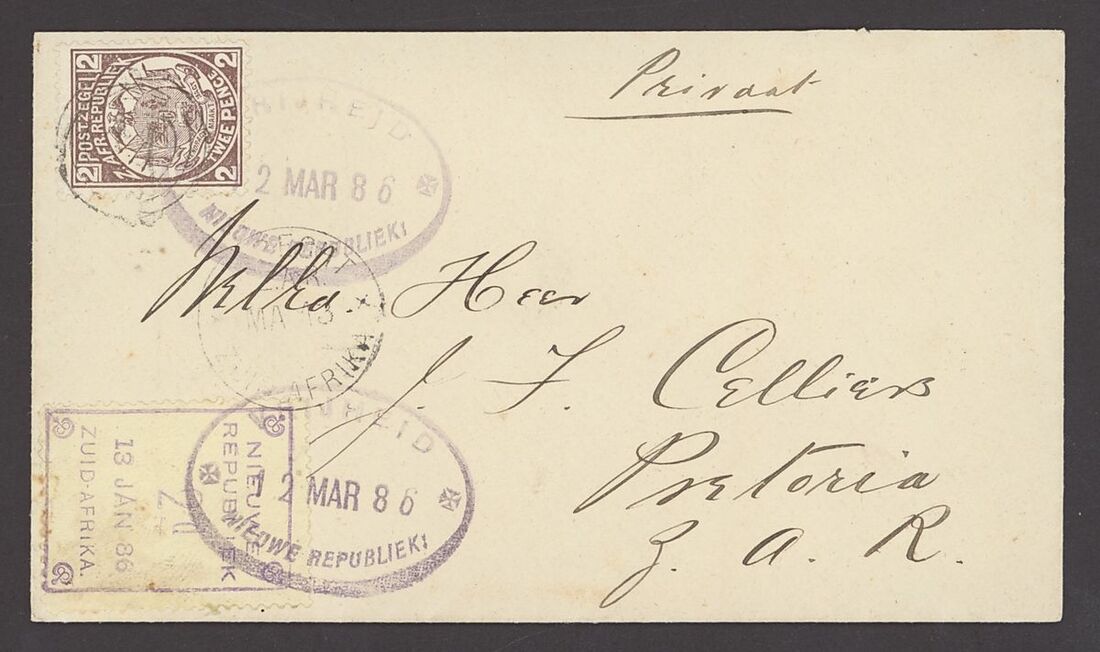 Privaat
2 POSTZEGEL 2
Z. AFR. REPUBLIEK
2 TWEE PENCE 2
VRIJHEID
2 MAR 86
NIEUWE REPUBLIEK!
MA 13
AFRIKA
Welled. Heer
J. F. Celliers
Pretoria
Z. A. R.
NIEUWE
REPUBLIEK
13 JAN 86
ZUID-AFRIKA.
VRIJHEID
2 MAR 86
NIEUWE REPUBLIEK!